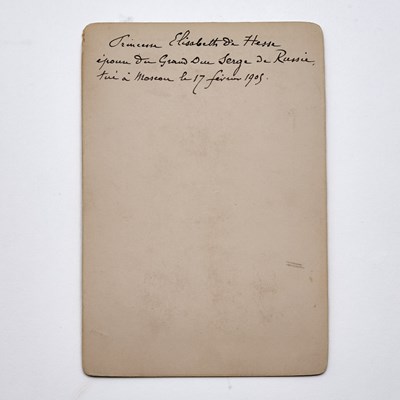 Princesse Elisabeth de Hesse
épouse du Grand Duc Serge de Russie.
tué à Moscou le 17 février 1905.